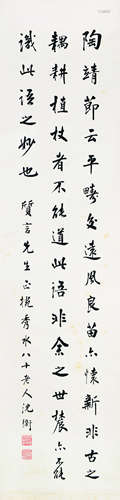 陶靖節云平疇交遠風良苗亦懷新非古之
耦耕植杖者不能道此語非余之世農亦不能
識此語之妙也
質言先生正提 秀水八十老人沈衛